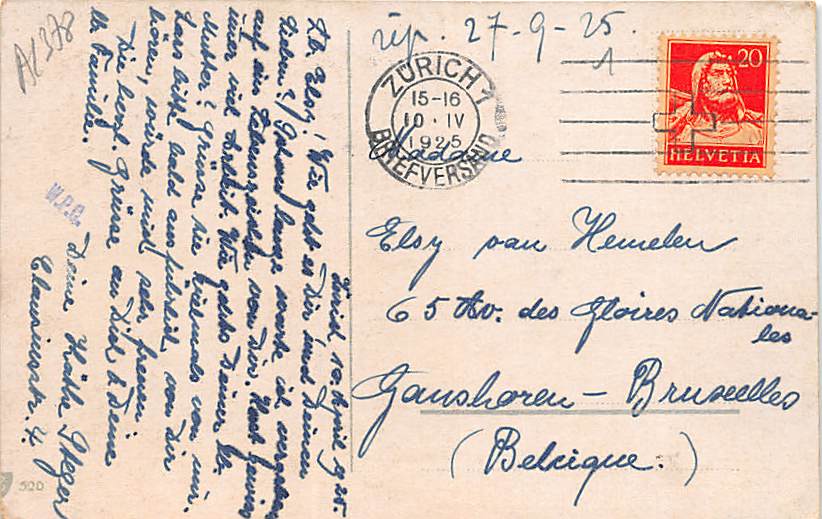 A1378
rép. 27-9-25.
1
ZÜRICH 1
15-16
10·IV
1925
BRIEFVERSAND
20
HELVETIA
Madame
Elsy van Hemelen
65 Av. des Gloires Nationa-
les
Ganshoren - Bruxelles
(Belgique.)
Zürich 10. April 1925.
Lb. Elsy! Wie geht es Dir und Deinen
Lieben? Schon lange warte ich vergebens
auf ein Lebenszeichen von Dir. Hast
immer viel Arbeit. Wie gehts Deiner lb.
Mutter? Grüsse sie vielmals von mir.
Lass bitte bald ausführlich von Dir
hören, würde mich sehr freuen
Die herzl. Grüsse an Dich & Deine
lb. Familie.
Deine Käthe Steger
Clausiusstr. 4.
W.P.C.
520